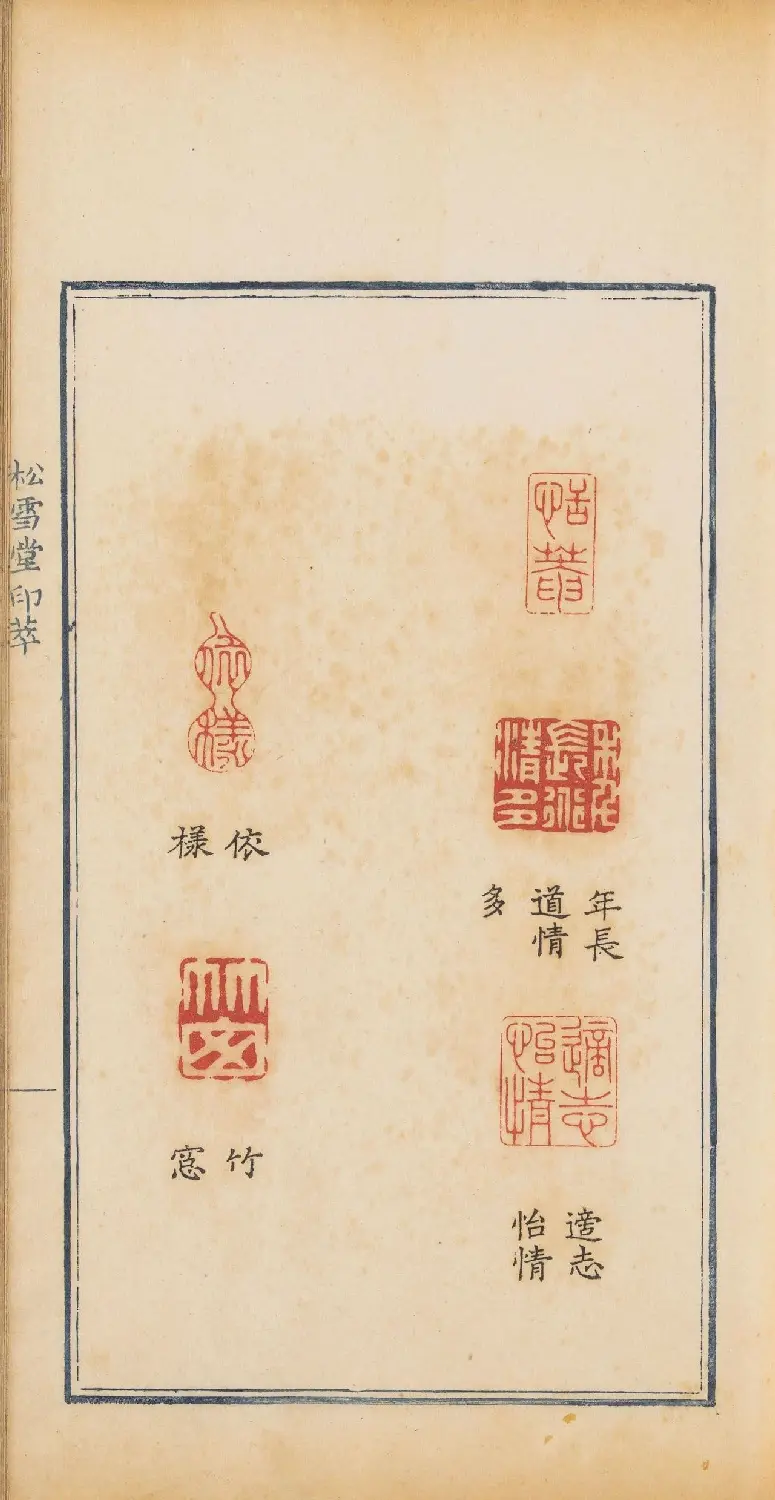 年長
道情
多
適志
怡情
依
樣
竹
窓
松雪堂印萃